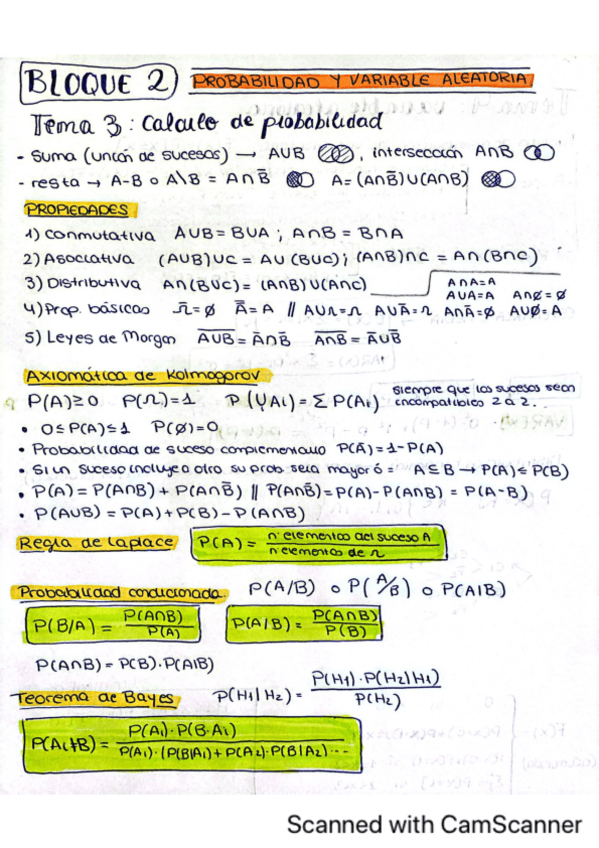 BLOQUE 2 PROBABILIDAD Y VARIABLE ALEATORIA
Tema 3: Calculo de probabilidad
- Suma (unión de sucesos) → A∪B , intersección A∩B
- resta → A-B o A\B = A∩B̅ A = (A∩B̅)∪(A∩B)
PROPIEDADES
1) Conmutativa A∪B = B∪A ; A∩B = B∩A
2) Asociativa (A∪B)∪C = A∪(B∪C) ; (A∩B)∩C = A∩(B∩C)
3) Distributiva A∩(B∪C) = (A∩B)∪(A∩C) A∩A=A
A∪A=A A∩∅=∅
4) Prop. básicas Ω̅=∅ A̿=A // A∪Ω=Ω A∪A̅=Ω A∩A̅=∅ A∪∅=A
5) Leyes de Morgan A̅∪̅B̅ = A̅∩B̅ A̅∩̅B̅ = A̅∪B̅
Axiomática de Kolmogorov
P(A)≥0 P(Ω)=1 P(∪Ai)=∑P(Ai) siempre que los sucesos sean
incompatibles 2 a 2.
• 0≤P(A)≤1 P(∅)=0
• Probabilidad de suceso complementario P(A̅)=1-P(A)
• Si un suceso incluye a otro su prob sera mayor ó = A⊆B → P(A)≤P(B)
• P(A) = P(A∩B) + P(A∩B̅) // P(A∩B̅)=P(A)-P(A∩B) = P(A-B)
• P(A∪B) = P(A)+P(B)-P(A∩B)
Regla de Laplace P(A) = n elementos del suceso A / n elementos de Ω
Probabilidad condicionada P(A/B) o P(A/B) o P(A|B)
P(B/A) = P(A∩B) / P(A) P(A/B) = P(A∩B) / P(B)
P(A∩B) = P(B)·P(A|B)
Teorema de Bayes P(H1|H2) = P(H1)·P(H2|H1) / P(H2)
P(Ai|B) = P(Ai)·P(B·Ai) / P(A1)·(P(B|A1)+P(A2)·P(B|A2)···
Scanned with CamScanner